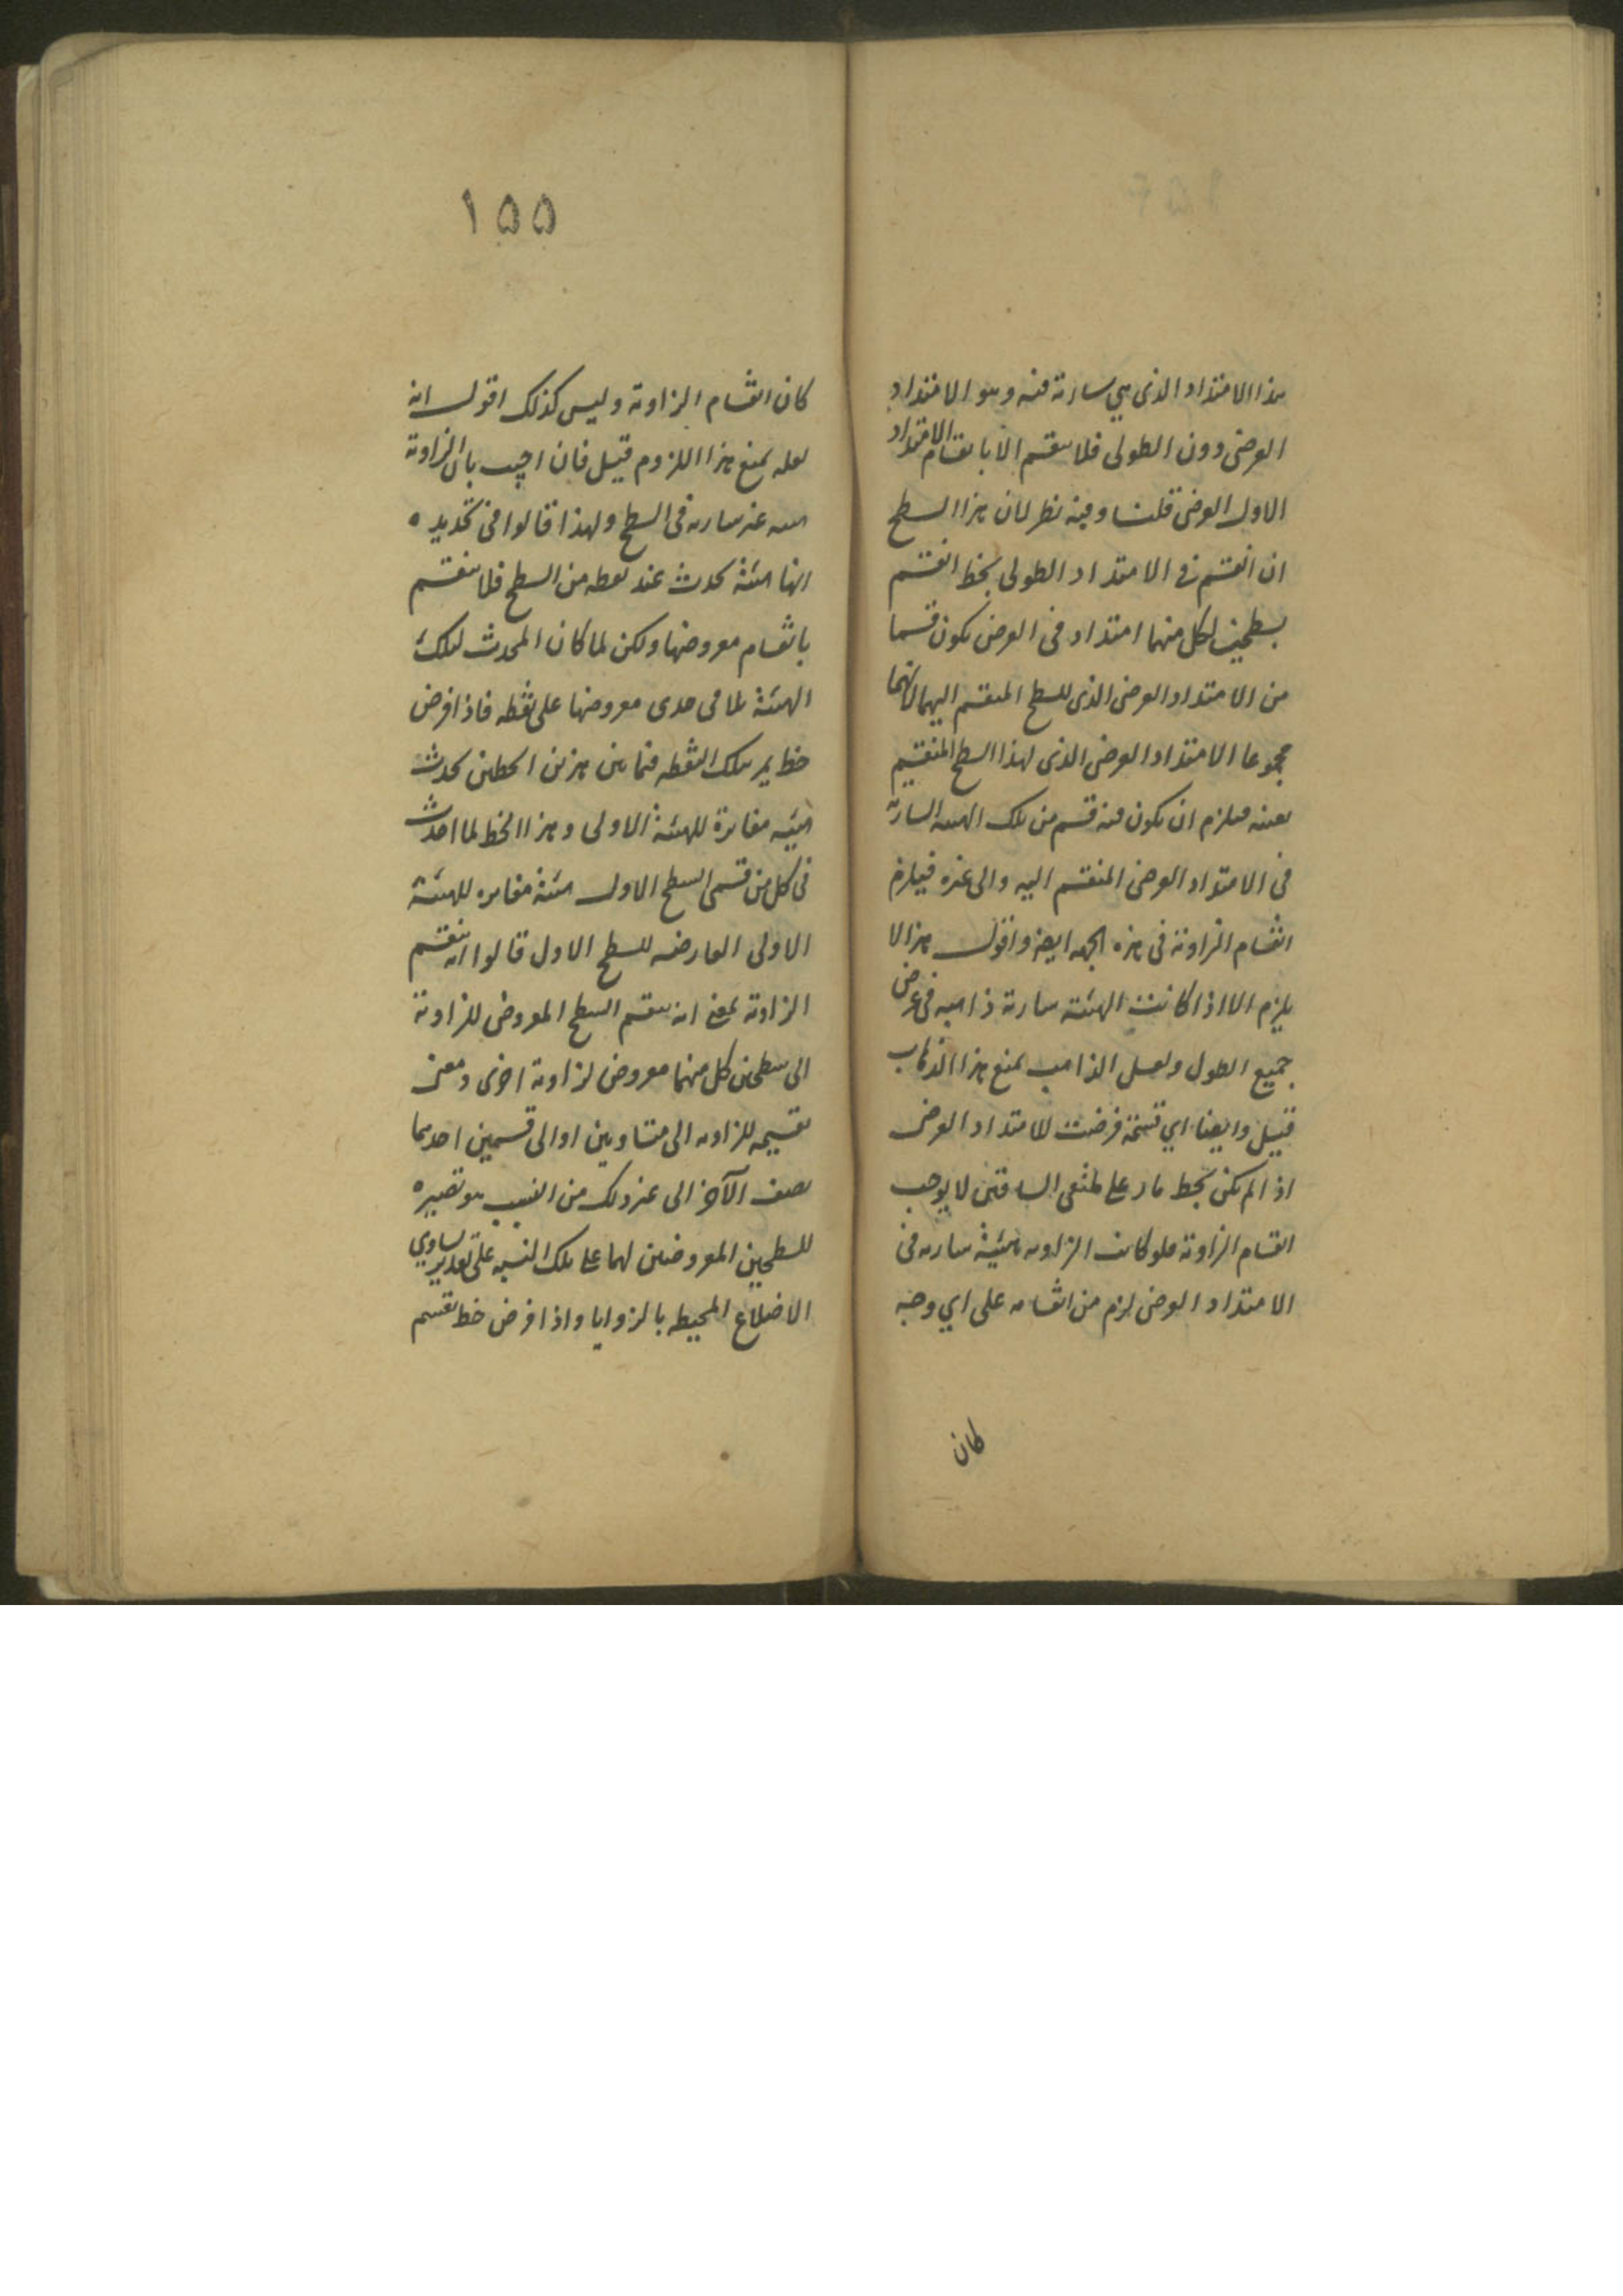 هذا الامتداد الذى هي سارية فيه وهو الامتداد
العرضى دون الطولى فلا ينقسم الا بانقسام الامتداد
الاول العرضى قلت وفيه نظر لان هذا السطح
ان انقسم فى الامتداد الطولى بخط انقسم
بسطحين لكل منهما امتداد فى العرض يكون قسما
من الامتداد العرضى الذى للسطح المنقسم اليهما لانهما
مجموعا الامتداد العرضى الذى لهذا السطح المنقسم
بعينه فيلزم ان يكون فيه قسم من تلك الهيئة السارية
فى الامتداد العرضى المنقسم اليه والى غيره فيلزم
انقسام الزاوية فى هذه الجهه ايضا واقول هذا لا
يلزم الا اذا كانت الهيئة سارية ذاهبه فى عرض
جميع الطول ولعل الذاهب يمنع هذا الذهاب
قيل وايضا اي قسمة فرضت للامتداد العرضى
اذا لم يكن بخط مار على ملتقى الساقين لا يوجب
انقسام الزاوية فلو كانت الزاويه هيئة ساريه فى
الامتداد العرضى لزم من انقسامه على اي وجه
كان
١٥٥
كان انقسام الزاوية وليس كذلك اقول انه
لعله يمنع هذا اللزوم قيل فان اجيب بان الزاوية
هيئه غير ساريه فى السطح ولهذا قالوا فى تحديده
انها هيئة تحدث عند نقطه من السطح فلا تنقسم
بانقسام معروضها ولكن لما كان المحدث لتلك
الهيئة تلاقى حدى معروضها على نقطه فاذا فرض
خط يمر بتلك النقطه فيما بين هذين الخطين تحدث
هيئه مغايرة للهيئة الاولى وهذا الخط لما احدث
فى كل من قسمى السطح الاول هيئة مغايره للهيئة
الاولى العارضه للسطح الاول قالوا انه ينقسم
الزاوية بمعنى انه ينقسم السطح المعروض للزاوية
الى سطحين كل منهما معروض لزاوية اخرى ومعنى
تقسيمه للزاويه الى متساويين او الى قسمين احدهما
نصف الآخر الى غير ذلك من النسب هو تصييره
للسطحين المعروضين لهما على تلك النسبه على تقدير تساوي
الاضلاع المحيطه بالزوايا واذا فرض خط تقسم